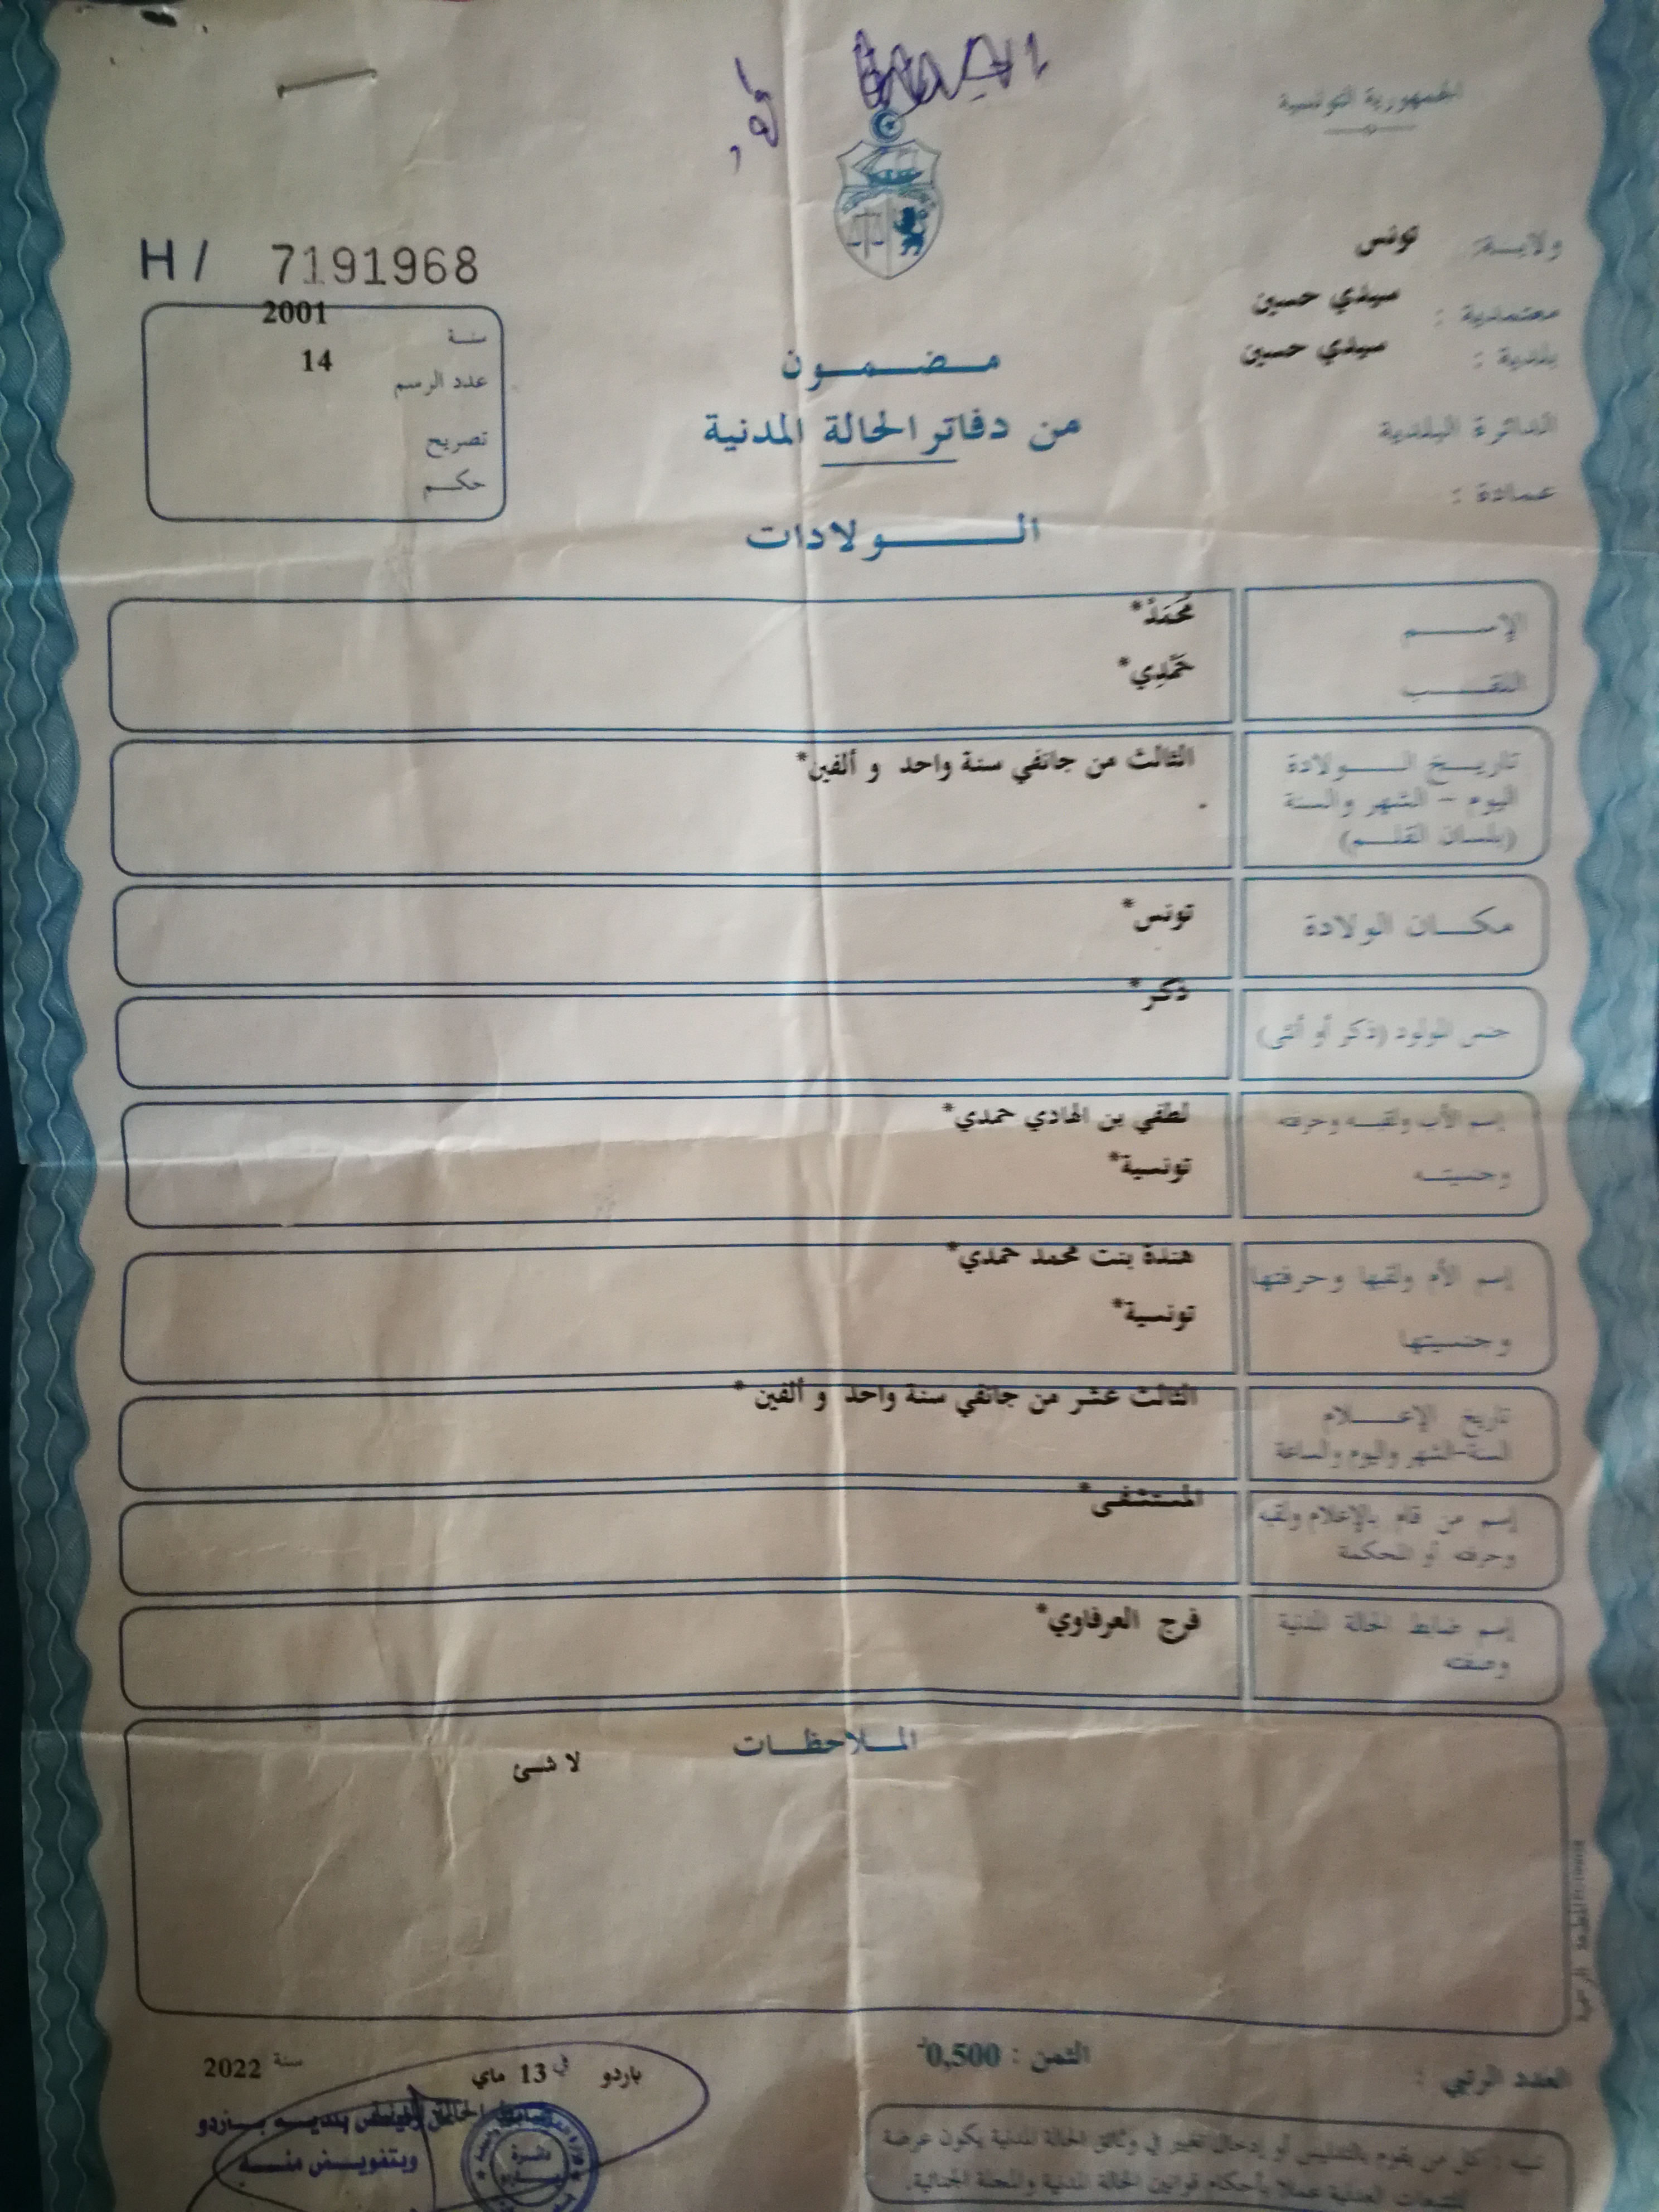 الجمهورية التونسية
H/ 7191968
ولايـة: تونس
معتمدية : سيدي حسين
بلدية : سيدي حسين
الدائرة البلدية
عمادة :
سنة 2001
عدد الرسم 14
تصريح
حكم
مضمون
من دفاتر الحالة المدنية
الولادات
الإسم مُحَمَدْ*
اللقب حَمْدِي*
تاريخ الولادة الثالث من جانفي سنة واحد و ألفين*
اليوم - الشهر والسنة
(بلسان القلم)
مكان الولادة تونس*
جنس المولود (ذكر أو أنثى) ذكر*
إسم الأب ولقبه وحرفته لطفي بن الهادي حمدي*
وجنسيته تونسية*
إسم الأم ولقبها وحرفتها هندة بنت محمد حمدي*
وجنسيتها تونسية*
تاريخ الإعلام الثالث عشر من جانفي سنة واحد و ألفين*
السنة-الشهر واليوم والساعة
إسم من قام بالإعلام ولقبه المستشفى*
وحرفته أو المحكمة
إسم ضابط الحالة المدنية فرج العرفاوي*
وصفته
الملاحظات
لا شئ
العدد الرتبي :
الثمن : 0,500د
باردو في 13 ماي سنة 2022
بلدية باردو
وبتفويض منه
دائرة
تنبيه : كل من يقوم بالتدليس أو إدخال تغيير في وثائق الحالة المدنية يكون عرضة
للتتبعات العدلية عملا بأحكام قوانين الحالة المدنية والمجلة الجنائية.